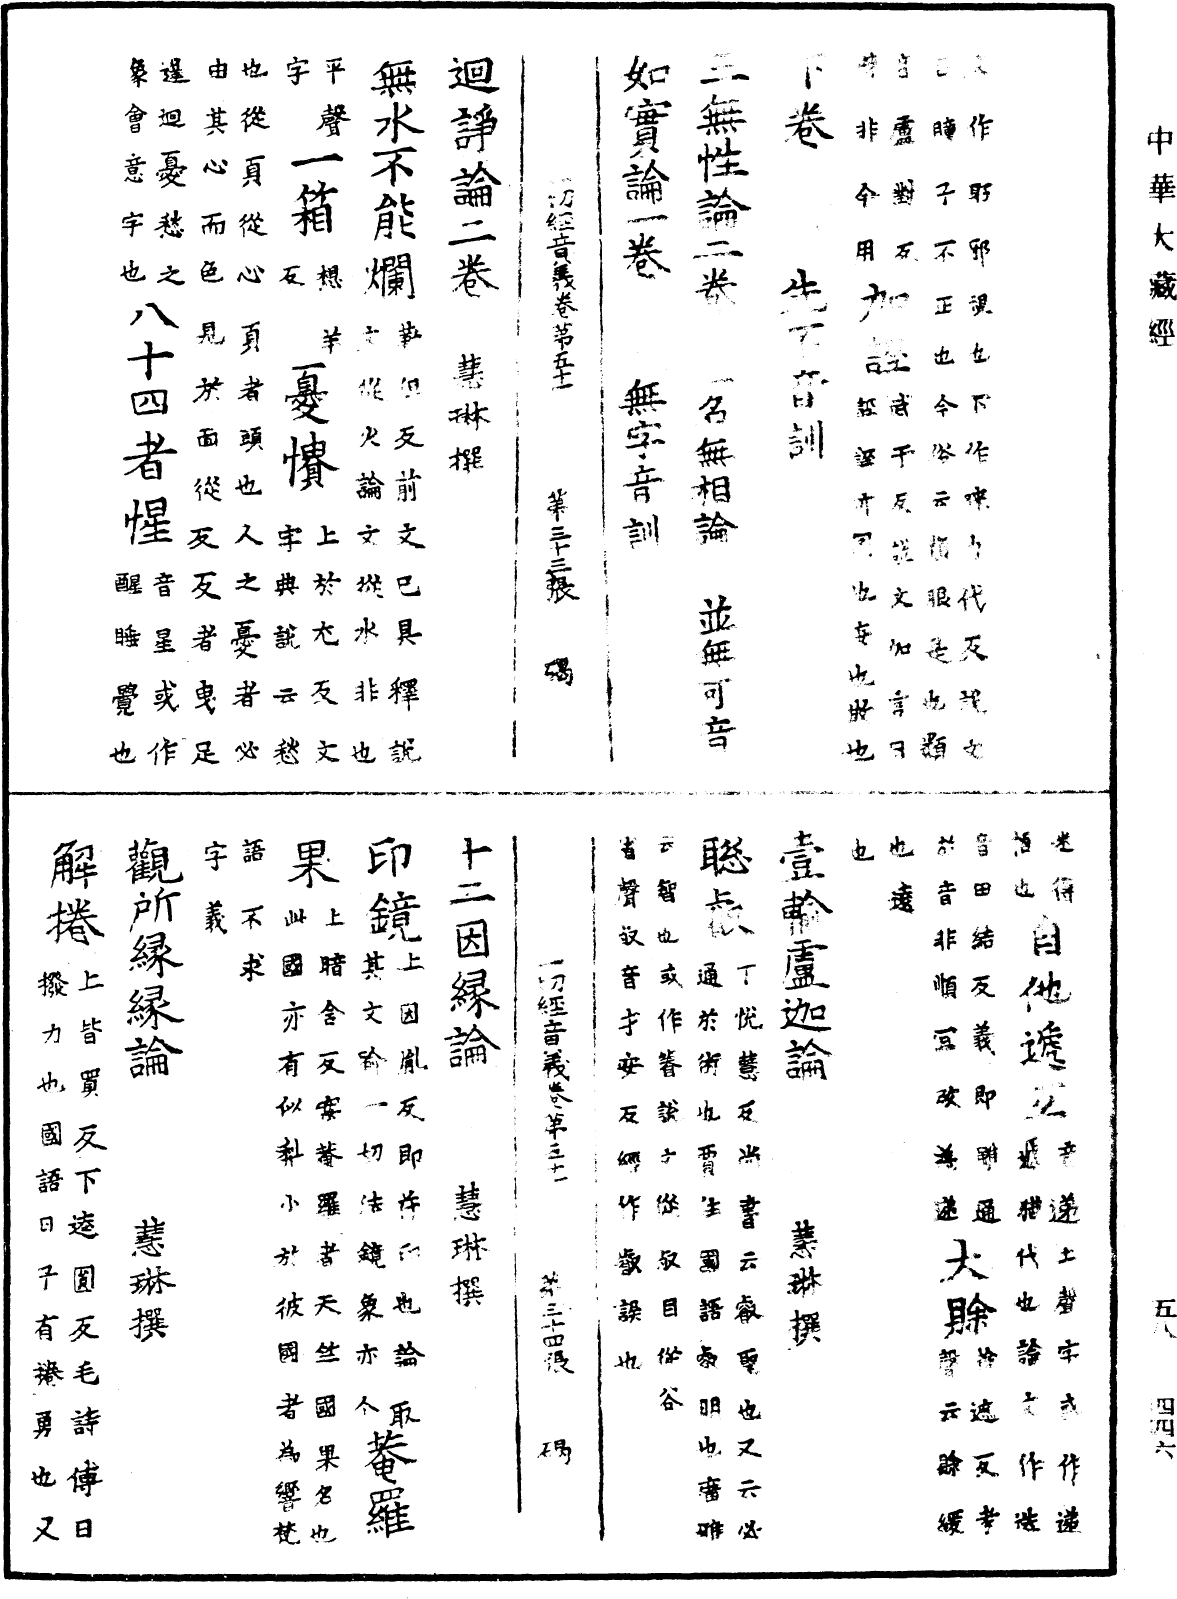 中華大藏經
五八 四四六
作䀎邪視也下作睞力代反說文
瞳子不正也今俗云眼是也類
盧對反
非今用
加誣
武于反說文加言曰
誣誣亦罔也妄也欺也
下卷 先不音訓
三無性論二卷 一名無相論 並無可音
如實論一卷 無字音訓
一切經音義卷第五十一 第三十三張 碣
迴諍論二卷 慧琳撰
無水不能爛
勒但反前文已具釋說
文從火論文從水非也
平聲
字
一箱
想羊
反
憂憒
上於尤反文
字典說云愁
也從頁從心頁者頭也人之憂者必
由其心而色見於面從反反者曳足
邊迴憂愁之
象會意字也
八十四者惺
音星或作
醒睡覺也
得
也
自他遞互
音遞上聲字或作遞
猶代也論文作迭
音田結反義即雖通
於音非順宜改為遞
大賖
聲云賖緩
也遠
也
壹輸盧迦論 慧琳撰
聰叡
丁悅慧反尚書云睿聖也又云必
通於術也賈生國語叡明也廣雅
云智也或作睿說文從叡目從谷
省聲叡音才安反經作叡誤也
一切經音義卷第五十一 第三十四張 碣
十二因緣論 慧琳撰
印鏡
上因胤反即符印也論取
其文喻一切法鏡象亦
菴羅
果
上暗含反案菴羅者天竺國果名也
此國亦有似梨小於彼國者為響梵
語不求
字義
觀所緣緣論 慧琳撰
解捲
上皆買反下逵圓反毛詩傳曰
撥力也國語曰子有捲勇也又